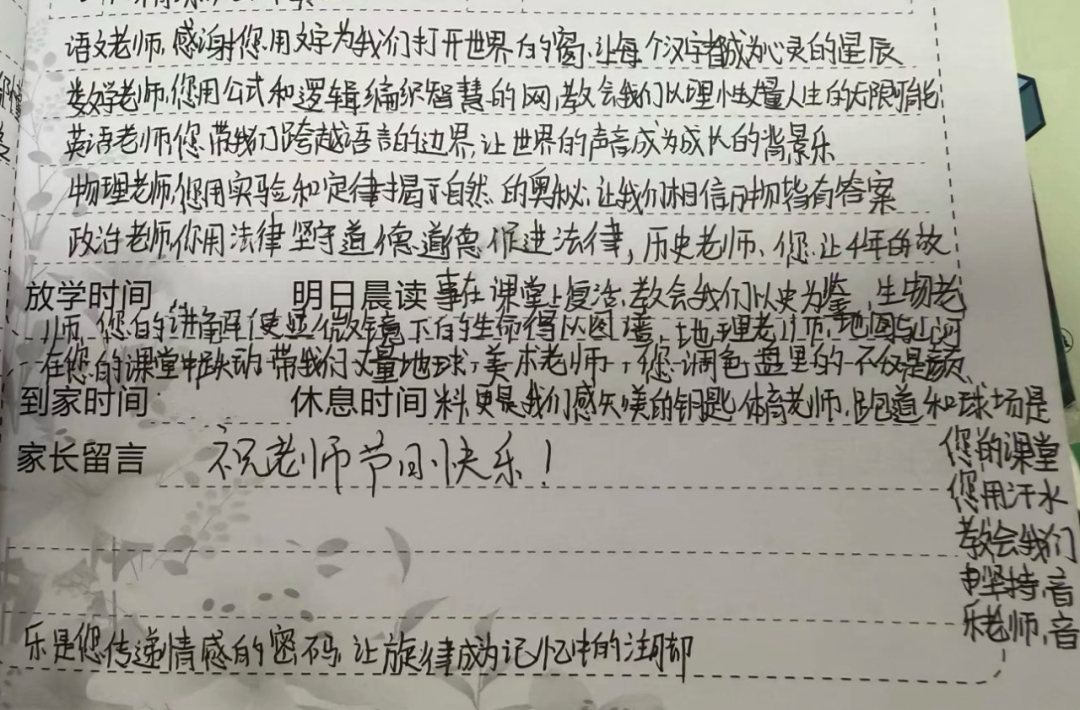 语文老师,感谢您用文字为我们打开世界的窗,让每个汉字都成为心灵的星辰
数学老师,您用公式和逻辑编织智慧的网,教会我们以理性丈量人生的无限可能
英语老师您带我们跨越语言的边界,让世界的声音成为成长的背景乐
物理老师,您用实验和定律揭示自然的奥秘,让我们相信万物皆有答案
政治老师你用法律坚守道德,道德促进法律,历史老师、您让千年的故
放学时间 明日晨读 事在课堂上复活,教会我们以史为鉴,生物老
师,您的讲解使显微镜下的生命得以图 ,地理老师,地图与山河
在您的课堂中跃动,带我们丈量地球,美术老师,您调色盘里的不仅是颜
到家时间 休息时间 料,更是我们感知美的钥匙,体育老师,跑道和球场是
家长留言 祝老师节日快乐!
您的课堂
您用汗水
教会我们
坚持,音
乐老师,音
乐是您传递情感的密码,让旋律成为记忆中的注脚